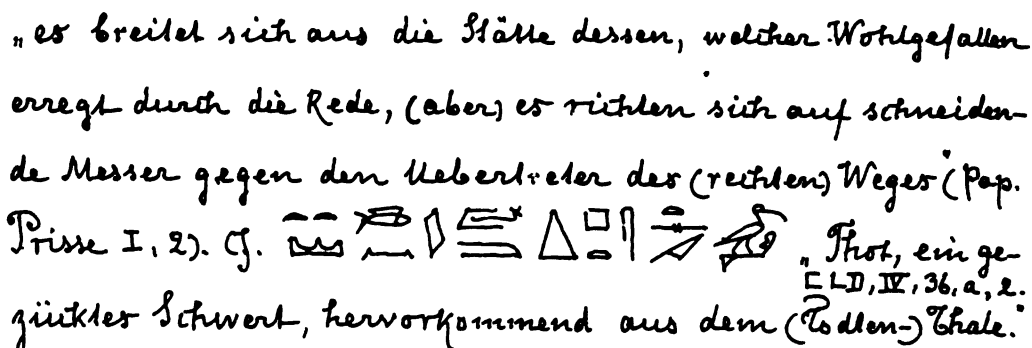 „es breitet sich aus die Stätte dessen, welcher Wohlgefallen
erregt durch die Rede, (aber) es richten sich auf schneiden-
de Messer gegen den Uebertreter des (rechten) Weges" (Pap.
Prisse I, 2). Cf. „Thot, ein ge-
[LD, IV, 36, a, 2.
zücktes Schwert, hervorkommend aus dem (Todten-) Thale."